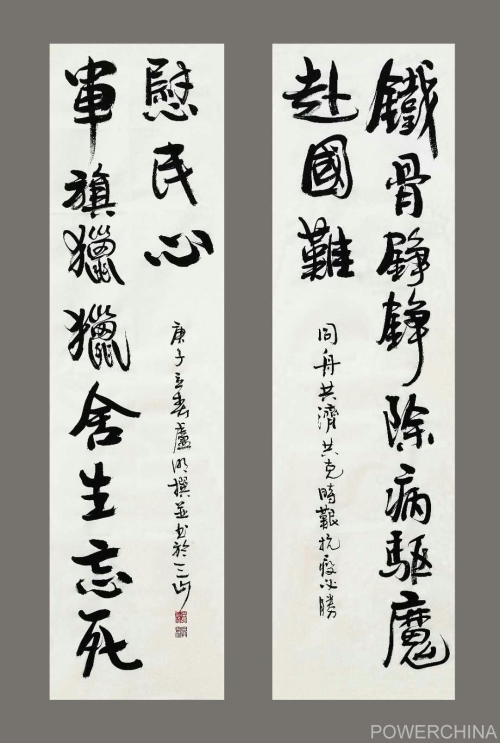 鐵骨錚錚除病驅魔
赴國難
同舟共濟共克時艱抗疫必勝
軍旗獵獵舍生忘死
慰民心
庚子立春盧明撰並書於三
POWERCHINA